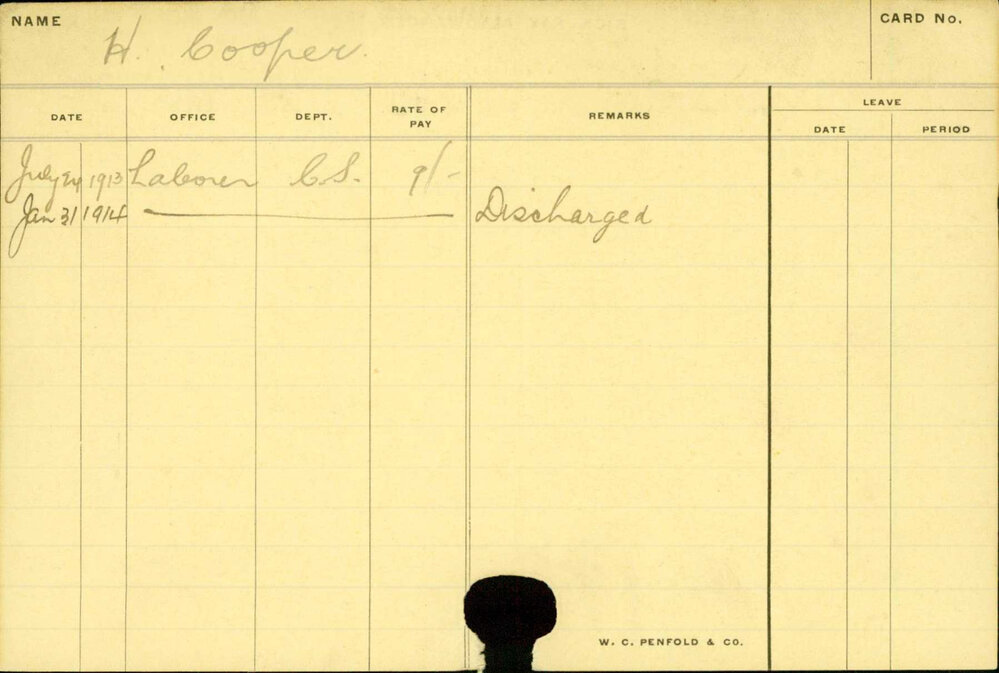 NAME
H. Cooper.
CARD No.
DATE OFFICE DEPT. RATE OF PAY REMARKS LEAVE
DATE PERIOD
July 24 1913 Laborer C.S. 9/-
Jan 31 1914 Discharged
W. C. PENFOLD & CO.